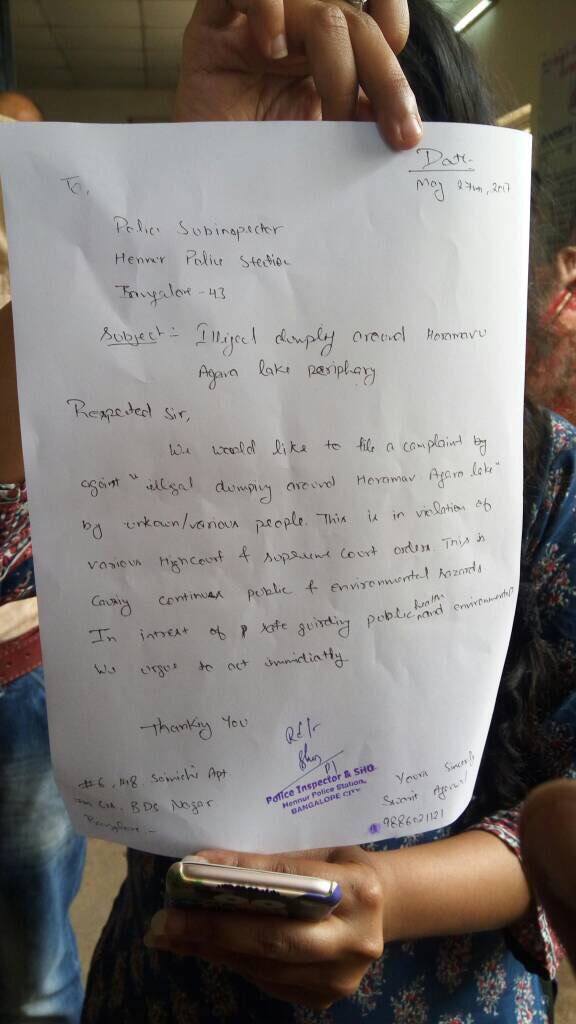 Date.
May 27th, 2017
To,
Police Subinspector
Hennur Police Stection
Bangalore - 43
Subject:- Illigeal dumping around Horamavu
Agara lake periphary
Respected Sir,
We would like to file a complaint by
against "illegal dumping around Horamav Agara lake"
by unkown/various people. This is in violation of
various Highcourt & supreme court orders. This is
causing continues public & environmental hazards.
In intrest of safe guirding public health and environmental
We urgue to act immidiatly.
Thanking You
Police Inspector & SHO
Hennur Police Station,
BANGALORE CITY
PI
#6, Apt
BDS Nagar
Bangalore -
Yours Sincerly
Agarwal
9886021121